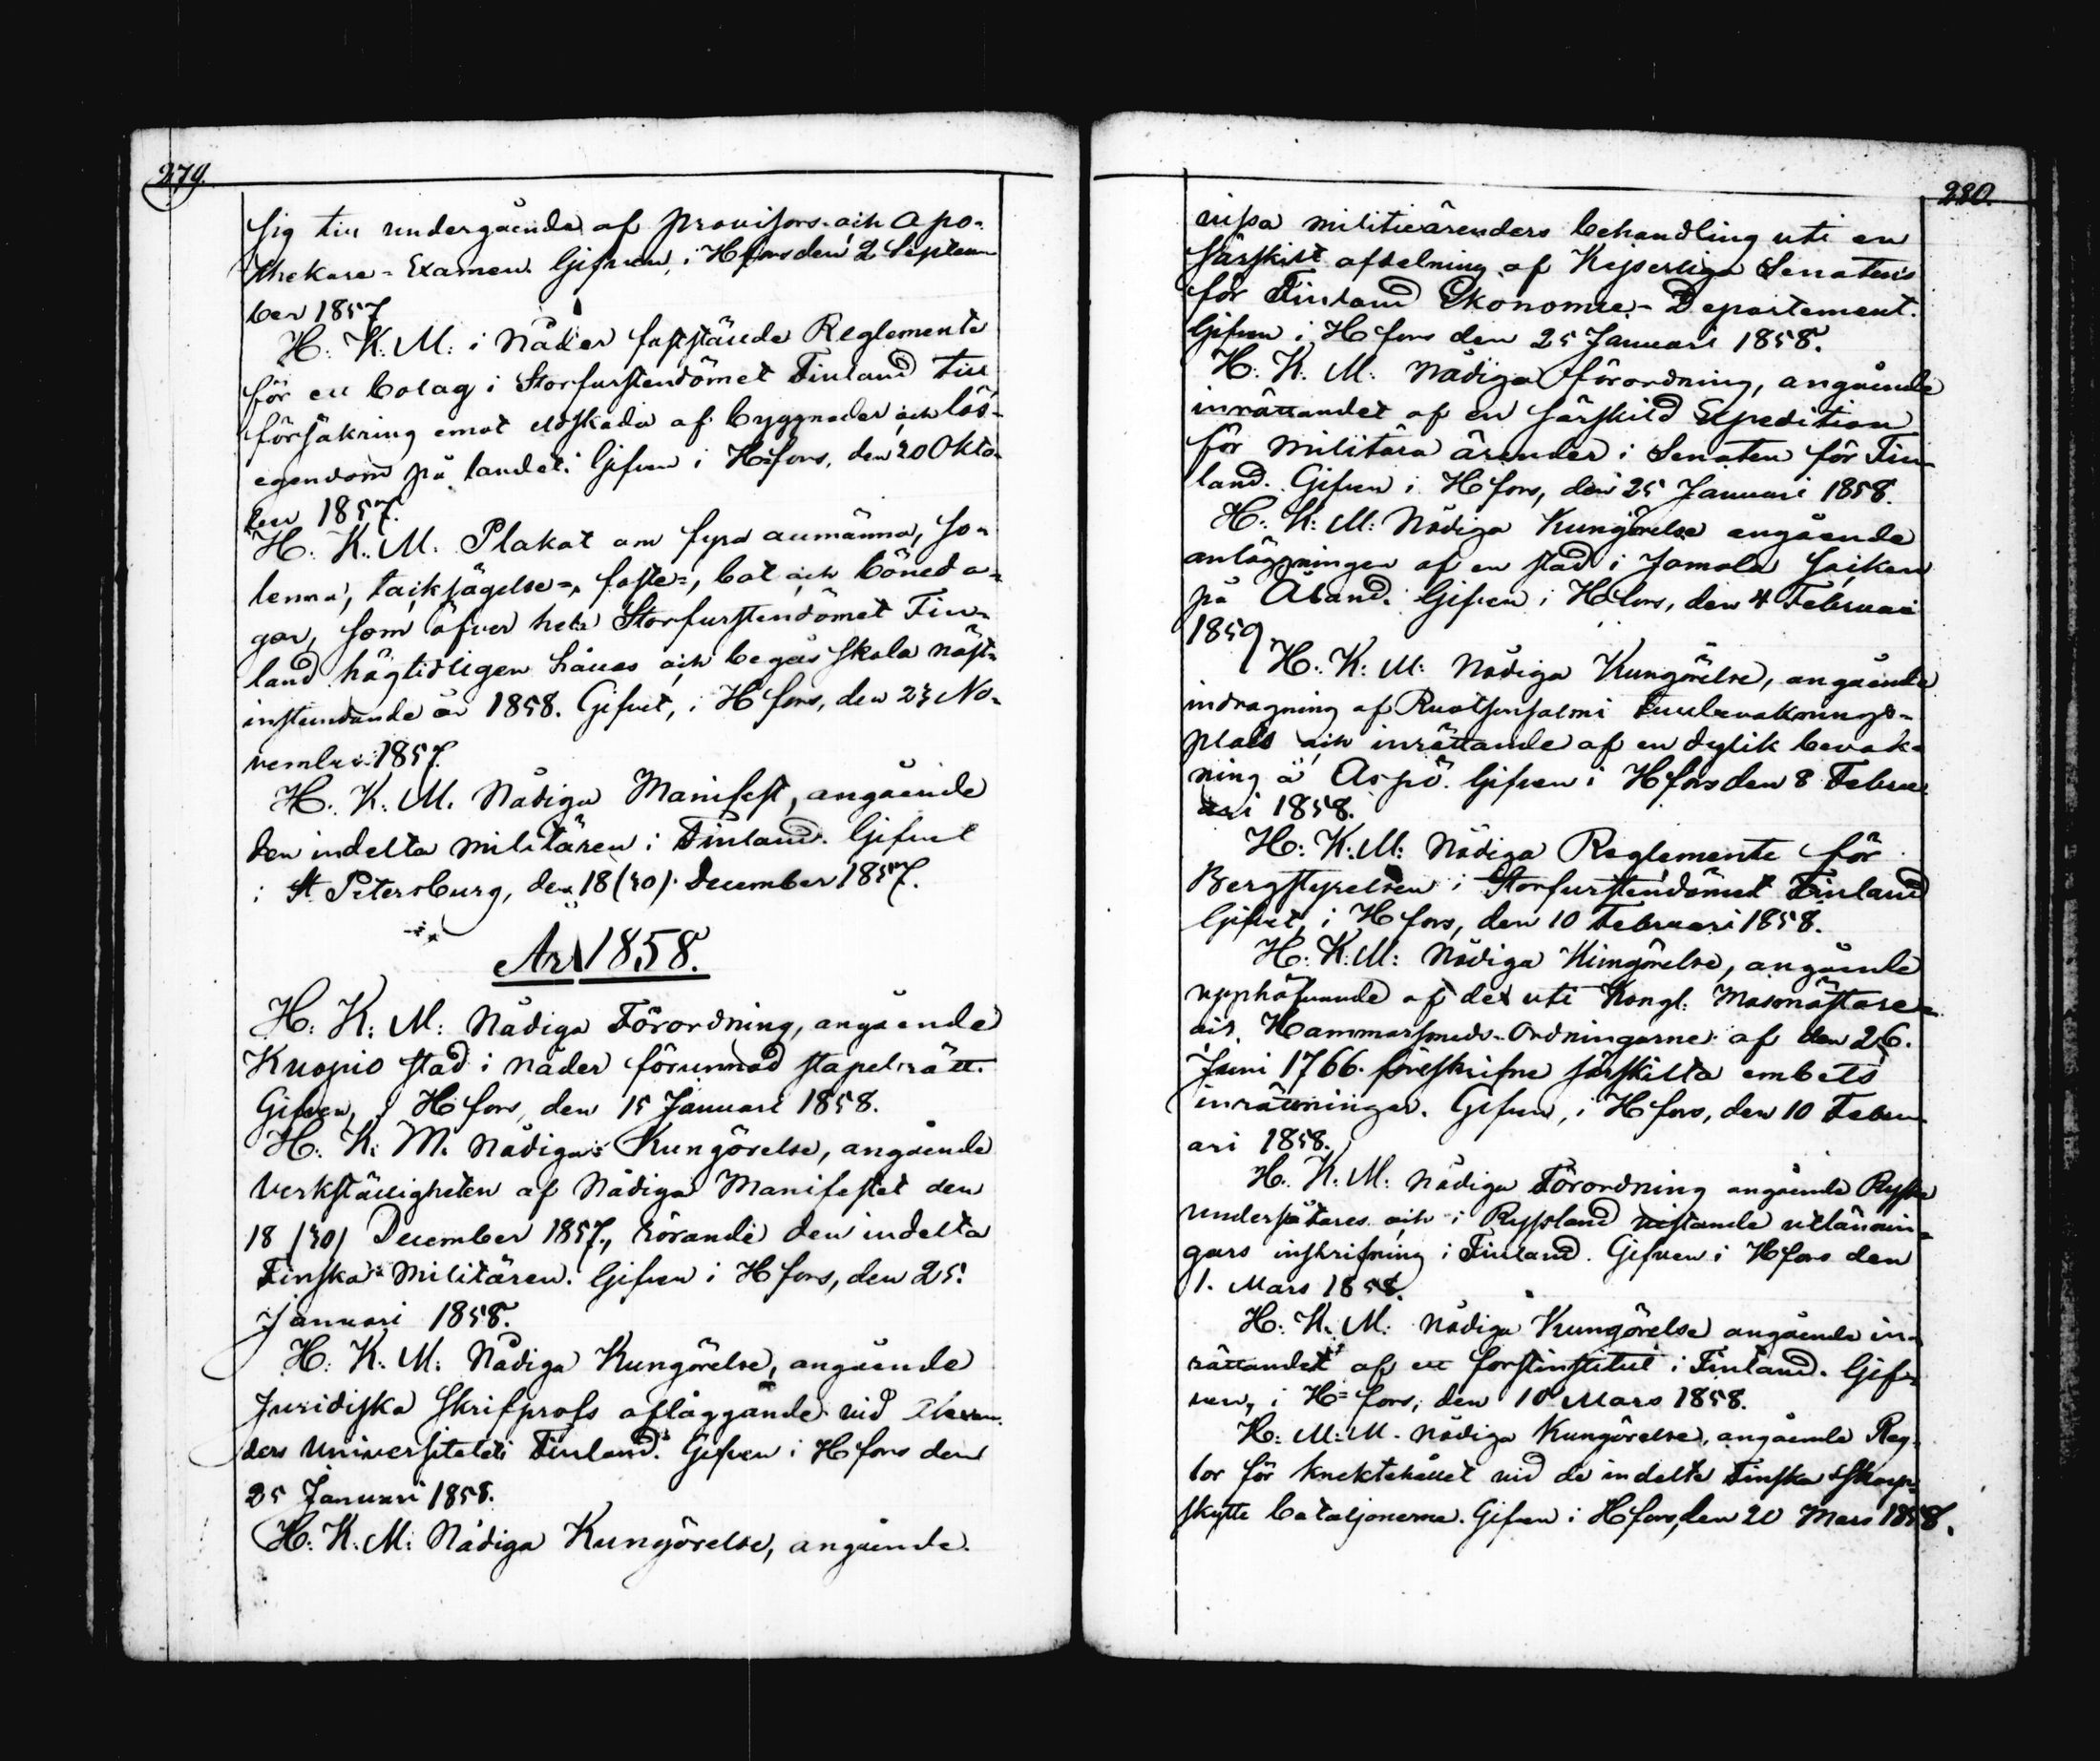 279.
sig till undergående af Provisors- och Apo-
thekare-Examen. Gifven, i H.fors den 2 Septem-
ber 1857
H. K. M. i Nåder fastställde Reglemente
för ett bolag i Storfurstendömet Finland till
försäkring emot eldskada af byggnader och lös-
egendom på landet. Gifven i H=fors, den 20 Okto-
ber 1857.
H. K. M. Plakat om fyra allmänna, so-
lenna, tacksägelse=, faste=, bot och böneda-
gar, som öfver hela Storfurstendömet Fin-
land högtidligen hållas och begås skola näst-
instundande år 1858. Gifvet, i H.fors, den 23 No-
vember 1857.
H. K. M. Nådiga Manifest, angående
den indelta militären i Finland. Gifvet
i St Petersburg, den 18 (30). December 1857.
År 1858.
H. K. M: Nådiga Förordning, angående
Kuopio stad i nåder förunnad stapelrätt.
Gifven, i H.fors, den 15 Januari 1858.
H. K: M. Nådiga Kungörelse, angående
Verkställigheten af Nådiga Manifestet den
18 /30/ December 1857, rörande den indelta
Finska Militären. Gifven i H.fors, den 25.
Januari 1858.
H. K. M: Nådiga Kungörelse, angående
Juridiska skrifprofs afläggande vid Alexan-
ders Universitetet i Finland. Gifven i H.fors den
25 Januari 1858.
H. K. M: Nådiga Kungörelse, angående
280.
vissa militieärenders behandling uti en
särskilt afdelning af Kejserliga Senatens
för Finland Ekonomie-Departement.
Gifven i H.fors den 25 Januari 1858.
H. K. M: Nådiga förordning, angående
inrättandet af en särskild Expedition
för militära ärender i Senaten för Fin-
land. Gifven i H.fors, den 25 Januari 1858.
H. K: M: Nådiga Kungörelse angående
anläggningen af en stad i Jomala socken
på Åland. Gifven i H.fors, den 4 Februari
1859
H. K: M: Nådiga Kungörelse, angående
indragning af Ruotsinsalmi tullbevaknings-
plats och inrättande af en dylik bevak-
ning å Aspö. Gifven i H.fors den 8 Febru-
ari 1858.
H: K: M: Nådiga Reglemente för
Bergstyrelsen i Storfurstendömet Finland
Gifvet, i H.fors, den 10 Februari 1858.
H: K: M: Nådiga Kungörelse, angående
upphäfvande af de uti Kongl. Masmästare-
och Hammarsmeds-Ordningarne af den 26.
Juni 1766. föreskrifne särskilta embets
inrättningar. Gifven, i H.fors, den 10 Febru-
ari 1858.
H. K. M: Nådiga Förordning angående Ryska
undersåtares och i Ryssland vistande utlännin-
gars inskrifning i Finland. Gifven i H.fors den
1. Mars 1858.
H: K. M: Nådiga Kungörelse angående in-
rättandet af ett forstinstitut i Finland. Gif-
ven, i H=fors, den 10 Mars 1858.
H: M: M. nådiga Kungörelse, angående Reg-
lor för knektehållet vid de indelte Finska Skarp-
skytte bataljonerna. Gifven i H.fors, den 20 Mars 1858.